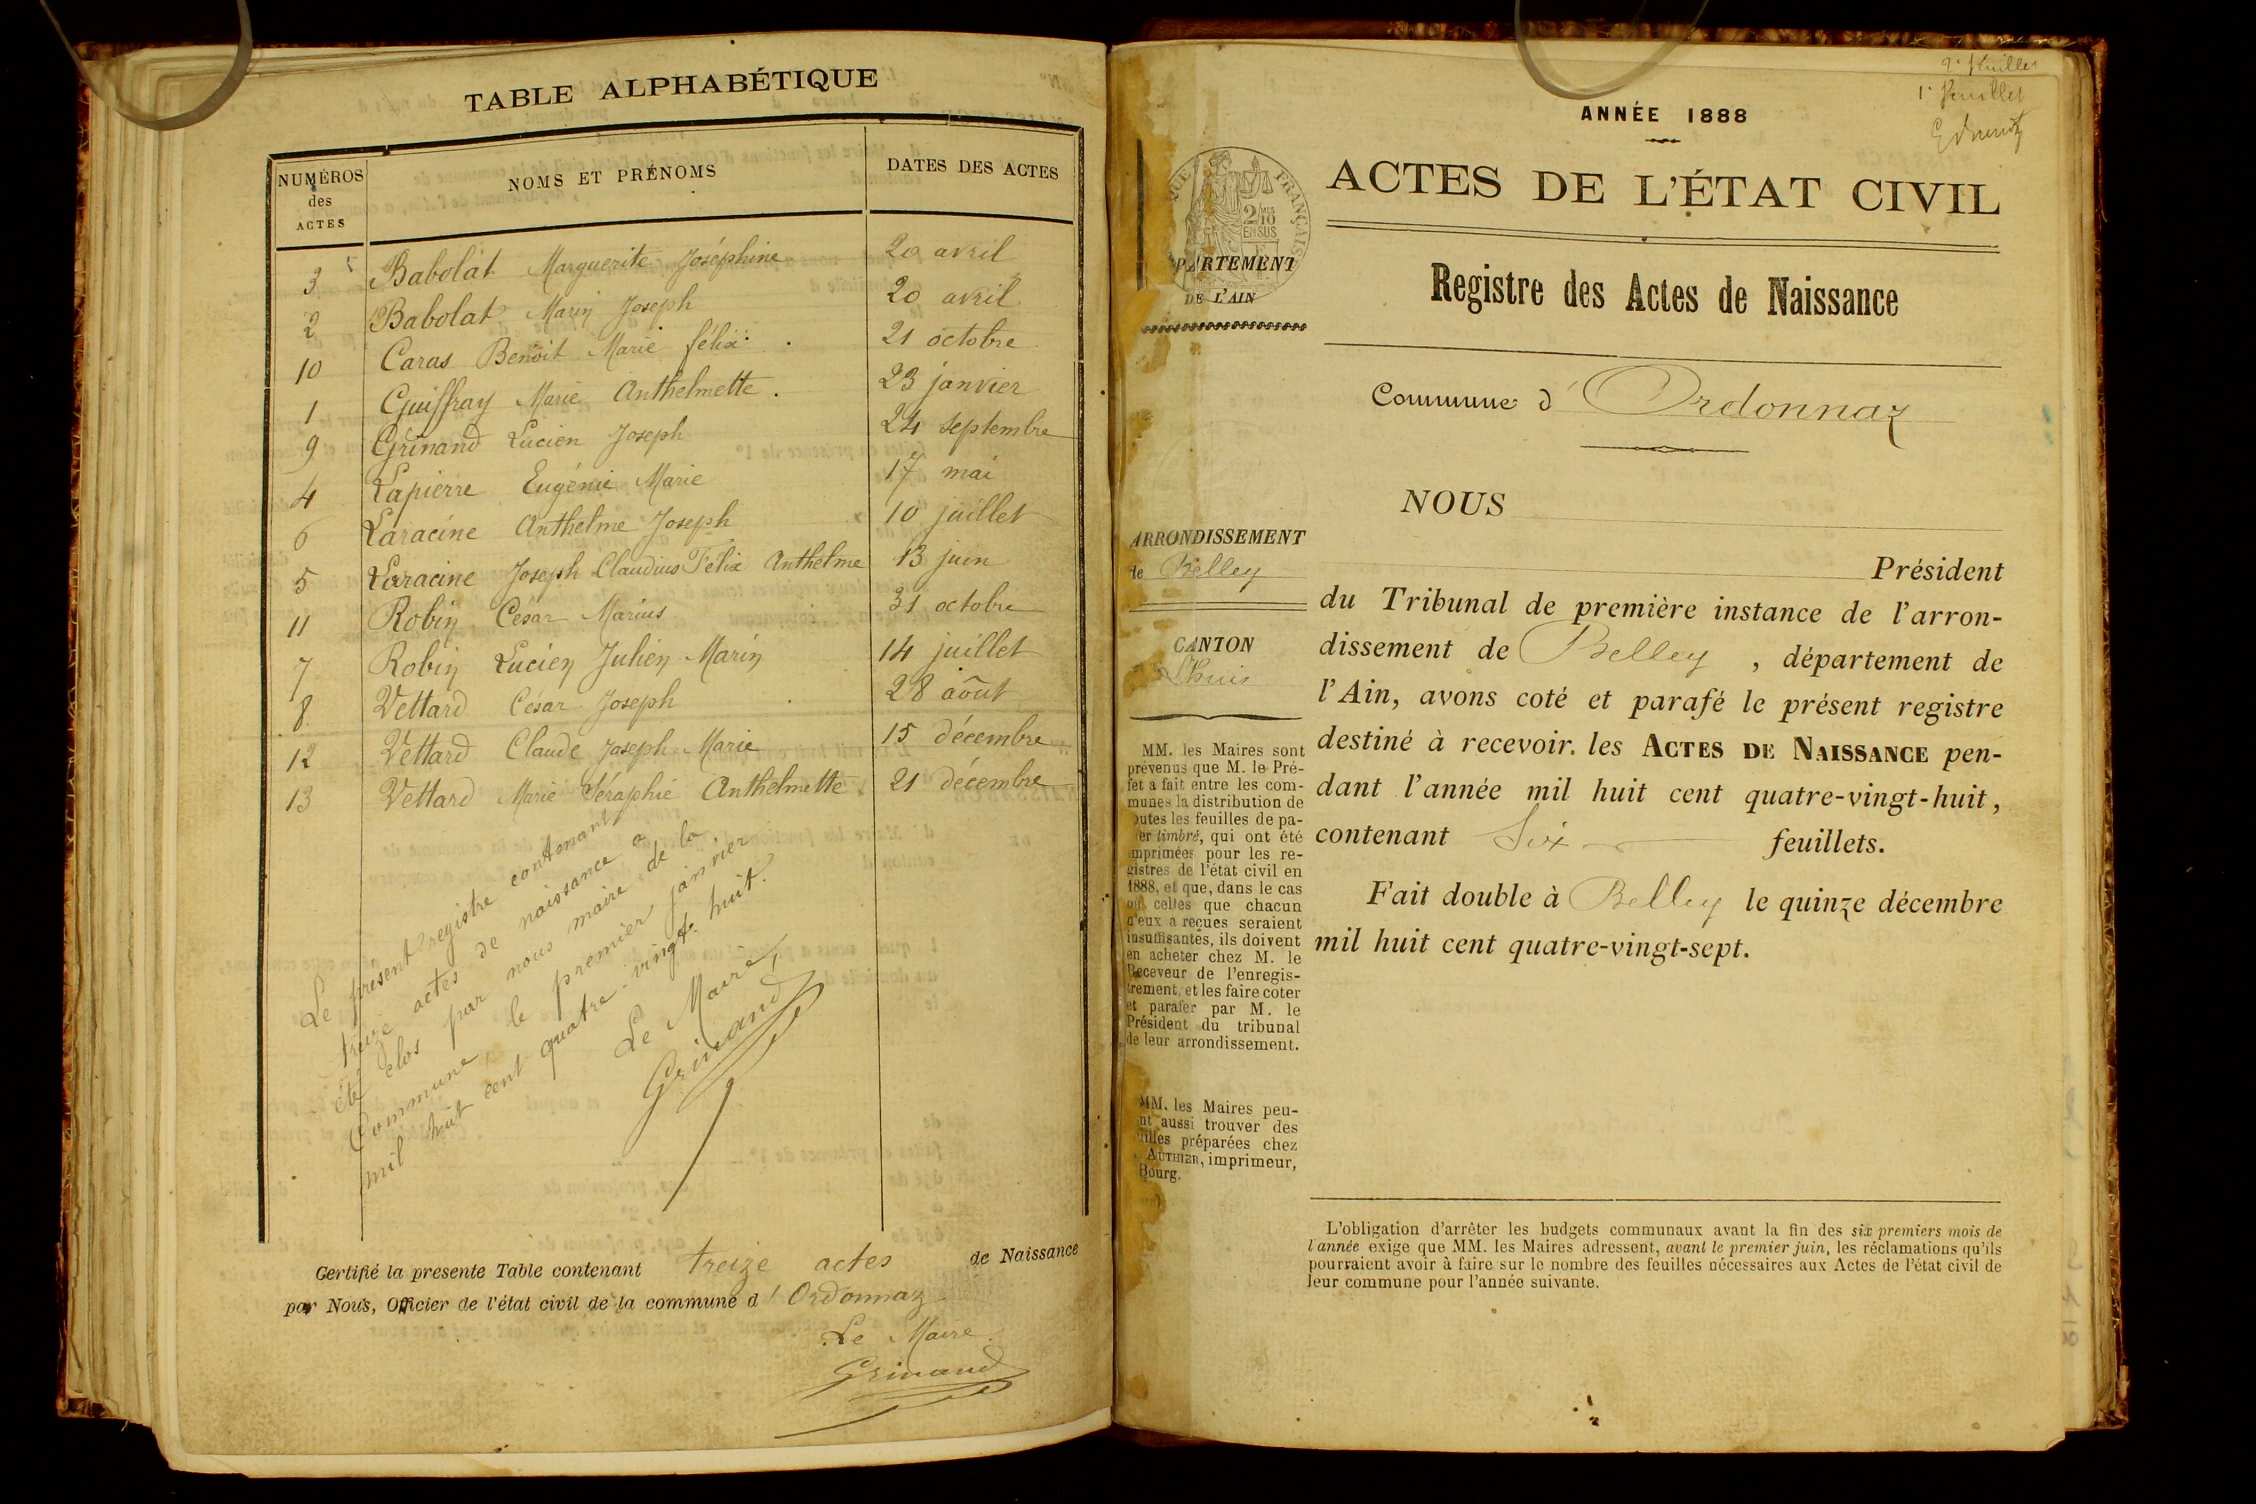 TABLE ALPHABÉTIQUE
NUMÉROS des ACTES NOMS ET PRÉNOMS DATES DES ACTES
3 Babolat Marguerite Joséphine 20 avril
2 Babolat Marin Joseph 20 avril
10 Caras Benoit Marie félix 21 octobre
1 Guiffray Marie Anthelmette 23 janvier
9 Grinand Lucien Joseph 24 septembre
4 Lapierre Eugénie Marie 17 mai
6 Laracine Anthelme Joseph 10 juillet
5 Laracine Joseph Claudius Félix Anthelme 13 juin
11 Robin César Marius 31 octobre
7 Robin Lucien Julien Marin 14 juillet
8 Vettard César Joseph 28 août
12 Vettard Claude Joseph Marie 15 décembre
13 Vettard Marie Séraphie Anthelmette 21 décembre
Le présent registre contenant
treize actes de naissance a
été clos par nous maire de la
Commune, le premier janvier
mil huit cent quatre-vingt-huit.
Le Maire,
Grinand
Certifié la presente Table contenant treize actes de Naissance
par Nous, Officier de l'état civil de la commune d'Ordonnaz
Le Maire
Grinand
2e feuillet
1e feuillet
ANNÉE 1888
ACTES DE L'ÉTAT CIVIL
Registre des Actes de Naissance
Commune d'Ordonnaz
NOUS
Président
du Tribunal de première instance de l'arron-
dissement de Belley, département de
l'Ain, avons coté et parafé le présent registre
destiné à recevoir. les ACTES DE NAISSANCE pen-
dant l'année mil huit cent quatre-vingt-huit,
contenant Six feuillets.
Fait double à Belley le quinze décembre
mil huit cent quatre-vingt-sept.
L'obligation d'arrêter les budgets communaux avant la fin des six premiers mois de
l'année exige que MM. les Maires adressent, avant le premier juin, les réclamations qu'ils
pourraient avoir à faire sur le nombre des feuilles nécessaires aux Actes de l'état civil de
leur commune pour l'année suivante.
FRANÇAISE
2 MES
10
EN SUS
PARTEMENT
DE L'AIN
ARRONDISSEMENT
de Belley
CANTON
Lhuis
MM. les Maires sont
prévenus que M. le Pré-
fet a fait entre les com-
munes la distribution de
outes les feuilles de pa-
er timbré, qui ont été
imprimées pour les re-
gistres de l'état civil en
1888, et que, dans le cas
où celles que chacun
d'eux a reçues seraient
insuffisantes, ils doivent
en acheter chez M. le
Receveur de l'enregis-
trement, et les faire coter
et parafer par M. le
Président du tribunal
de leur arrondissement.
MM. les Maires peu-
nt aussi trouver des
illes préparées chez
AUTHIER, imprimeur,
Bourg.